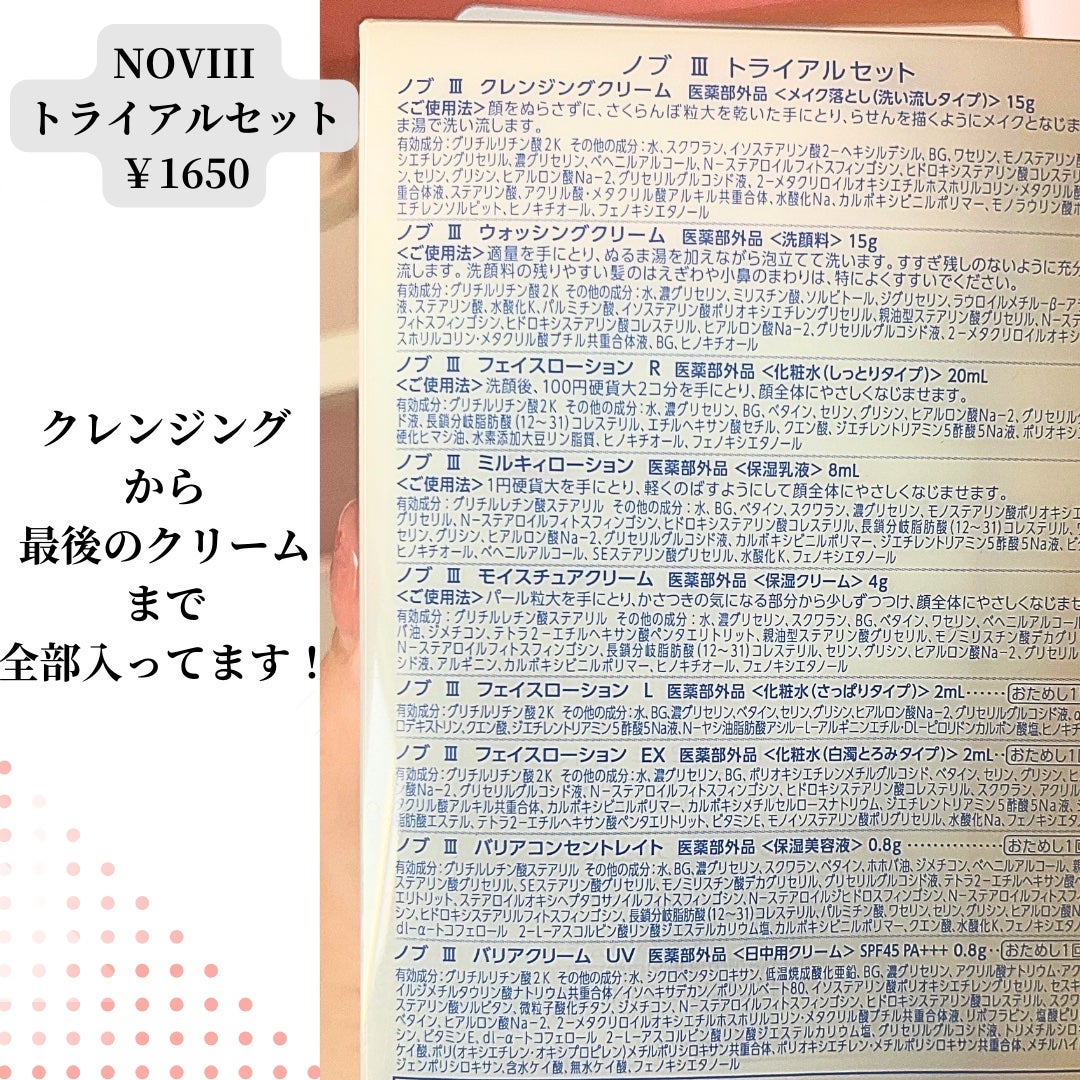 NOVIII
トライアルセット
￥1650
クレンジング
から
最後のクリーム
まで
全部入ってます！
ノブ Ⅲ トライアルセット
ノブ Ⅲ クレンジングクリーム 医薬部外品 <メイク落とし(洗い流しタイプ)> 15g
<ご使用法>顔をぬらさずに、さくらんぼ粒大を乾いた手にとり、らせんを描くようにメイクとなじま
ま湯で洗い流します。
有効成分：グリチルリチン酸2K その他の成分：水、スクワラン、イソステアリン酸2-ヘキシルデシル、BG、ワセリン、モノステアリン酸
シエチレングリセリル、濃グリセリン、ベヘニルアルコール、N-ステアロイルフィトスフィンゴシン、ヒドロキシステアリン酸コレステリ
ン、セリン、グリシン、ヒアルロン酸Na-2、グリセリルグルコシド液、2-メタクリロイルオキシエチルホスホリルコリン・メタクリル酸
重合体液、ステアリン酸、アクリル酸・メタクリル酸アルキル共重合体、水酸化Na、カルボキシビニルポリマー、モノラウリン酸ポ
エチレンソルビット、ヒノキチオール、フェノキシエタノール
ノブ Ⅲ ウォッシングクリーム 医薬部外品 <洗顔料> 15g
<ご使用法>適量を手にとり、ぬるま湯を加えながら泡立てて洗います。すすぎ残しのないように充分
流します。洗顔料の残りやすい髪のはえぎわや小鼻のまわりは、特によくすすいでください。
有効成分：グリチルリチン酸2K その他の成分：水、濃グリセリン、ミリスチン酸、ソルビトール、ジグリセリン、ラウロイルメチル-β-ア
液、ステアリン酸、水酸化K、パルミチン酸、イソステアリン酸ポリオキシエチレングリセリル、親油型ステアリン酸グリセリル、N-ステ
フィトスフィンゴシン、ヒドロキシステアリン酸コレステリル、ヒアルロン酸Na-2、グリセリルグルコシド液、2-メタクリロイルオキシ
スホリルコリン・メタクリル酸ブチル共重合体液、BG、ヒノキチオール
ノブ Ⅲ フェイスローション R 医薬部外品 <化粧水(しっとりタイプ)> 20mL
<ご使用法>洗顔後、100円硬貨大2コ分を手にとり、顔全体にやさしくなじませます。
有効成分：グリチルリチン酸2K その他の成分：水、濃グリセリン、BG、ベタイン、セリン、グリシン、ヒアルロン酸Na-2、グリセリルグ
ド液、長鎖分岐脂肪酸(12～31)コレステリル、エチルヘキサン酸セチル、クエン酸、ジエチレントリアミン5酢酸5Na液、ポリオキシ
硬化ヒマシ油、水素添加大豆リン脂質、ヒノキチオール、フェノキシエタノール
ノブ Ⅲ ミルキィローション 医薬部外品 <保湿乳液> 8mL
<ご使用法>1円硬貨大を手にとり、軽くのばすようにして顔全体にやさしくなじませます。
有効成分：グリチルレチン酸ステアリル その他の成分：水、BG、ベタイン、スクワラン、濃グリセリン、モノステアリン酸ポリオキシエ
グリセリル、N-ステアロイルフィトスフィンゴシン、ヒドロキシステアリン酸コレステリル、長鎖分岐脂肪酸(12～31)コレステリル、
セリン、グリシン、ヒアルロン酸Na-2、グリセリルグルコシド液、カルボキシビニルポリマー、ジエチレントリアミン5酢酸5Na液、ビ
ヒノキチオール、ベヘニルアルコール、SEステアリン酸グリセリル、水酸化K、フェノキシエタノール
ノブ Ⅲ モイスチュアクリーム 医薬部外品 <保湿クリーム> 4g
<ご使用法>パール粒大を手にとり、かさつきの気になる部分から少しずつつけ、顔全体にやさしくなじませ
有効成分：グリチルレチン酸ステアリル その他の成分：水、濃グリセリン、スクワラン、BG、ベタイン、ワセリン、ベヘニルアルコール、
バ油、ジメチコン、テトラ2-エチルヘキサン酸ペンタエリトリット、親油型ステアリン酸グリセリル、モノミリスチン酸デカグリ
N-ステアロイルフィトスフィンゴシン、長鎖分岐脂肪酸(12～31)コレステリル、セリン、グリシン、ヒアルロン酸Na-2、グリセリルグルコ
シド液、アルギニン、カルボキシビニルポリマー、ヒノキチオール、フェノキシエタノール
ノブ Ⅲ フェイスローション L 医薬部外品 <化粧水(さっぱりタイプ)> 2mL……おためし1
有効成分：グリチルリチン酸2K その他の成分：水、BG、濃グリセリン、ベタイン、セリン、グリシン、ヒアルロン酸Na-2、グリセリルグルコシド液、α
ロデキストリン、クエン酸、ジエチレントリアミン5酢酸5Na液、N-ヤシ油脂肪酸アシル-L-アルギニンエチル・DL-ピロリドンカルボン酸塩、ヒノキチ
ノブ Ⅲ フェイスローション EX 医薬部外品 <化粧水(白濁とろみタイプ)> 2mL‥おためし1回
有効成分：グリチルリチン酸2K その他の成分：水、濃グリセリン、BG、ポリオキシエチレンメチルグルコシド、ベタイン、セリン、グリシン、ヒ
ン酸Na-2、グリセリルグルコシド液、N-ステアロイルフィトスフィンゴシン、ヒドロキシステアリン酸コレステリル、スクワラン、アクリル
タクリル酸アルキル共重合体、カルボキシビニルポリマー、カルボキシメチルセルロースナトリウム、ジエチレントリアミン5酢酸5Na液、
脂肪酸エステル、テトラ2-エチルヘキサン酸ペンタエリトリット、ビタミンE、モノイソステアリン酸ポリグリセリル、水酸化Na、フェノキシエタ
ノブ Ⅲ バリアコンセントレイト 医薬部外品 <保湿美容液> 0.8g……………おためし1回
有効成分：グリチルレチン酸ステアリル その他の成分：水、BG、濃グリセリン、スクワラン、ベタイン、ホホバ油、ジメチコン、ベヘニルアルコール、親
ステアリン酸グリセリル、SEステアリン酸グリセリル、モノミリスチン酸デカグリセリル、グリセリルグルコシド液、テトラ2-エチルヘキサン酸ペ
エリトリット、ステアロイルオキシヘプタコサノイルフィトスフィンゴシン、N-ステアロイルジヒドロスフィンゴシン、N-ステアロイルフィトスフ
シン、ヒドロキシステアリルフィトスフィンゴシン、長鎖分岐脂肪酸(12～31)コレステリル、パルミチン酸、ワセリン、セリン、グリシン、ヒアルロン酸N
dl-α-トコフェロール 2-L-アスコルビン酸リン酸ジエステルカリウム塩、カルボキシビニルポリマー、クエン酸、水酸化K、フェノキシエタ
ノブ Ⅲ バリアクリーム UV 医薬部外品 <日中用クリーム> SPF45 PA+++ 0.8g‥おためし1回
有効成分：グリチルリチン酸2K その他の成分：水、シクロペンタシロキサン、低温焼成酸化亜鉛、BG、濃グリセリン、アクリル酸ナトリウム・アク
イルジメチルタウリン酸ナトリウム共重合体/イソヘキサデカン/ポリソルベート80、イソステアリン酸ポリオキシエチレングリセリル、セスキ
ステアリン酸ソルビタン、微粒子酸化チタン、ジメチコン、N-ステアロイルフィトスフィンゴシン、ヒドロキシステアリン酸コレステリル、スクワ
ベタイン、ヒアルロン酸Na-2、2-メタクリロイルオキシエチルホスホリルコリン・メタクリル酸ブチル共重合体液、リボフラビン、塩酸ピリ
シン、ビタミンE、dl-α-トコフェロール 2-L-アスコルビン酸リン酸ジエステルカリウム塩、グリセリルグルコシド液、トリメチルシロ
ケイ酸、ポリ(オキシエチレン・オキシプロピレン)メチルポリシロキサン共重合体、ポリオキシエチレン・メチルポリシロキサン共重合体、メチルハイ
ジェンポリシロキサン、含水ケイ酸、無水ケイ酸、フェノキシエタノール